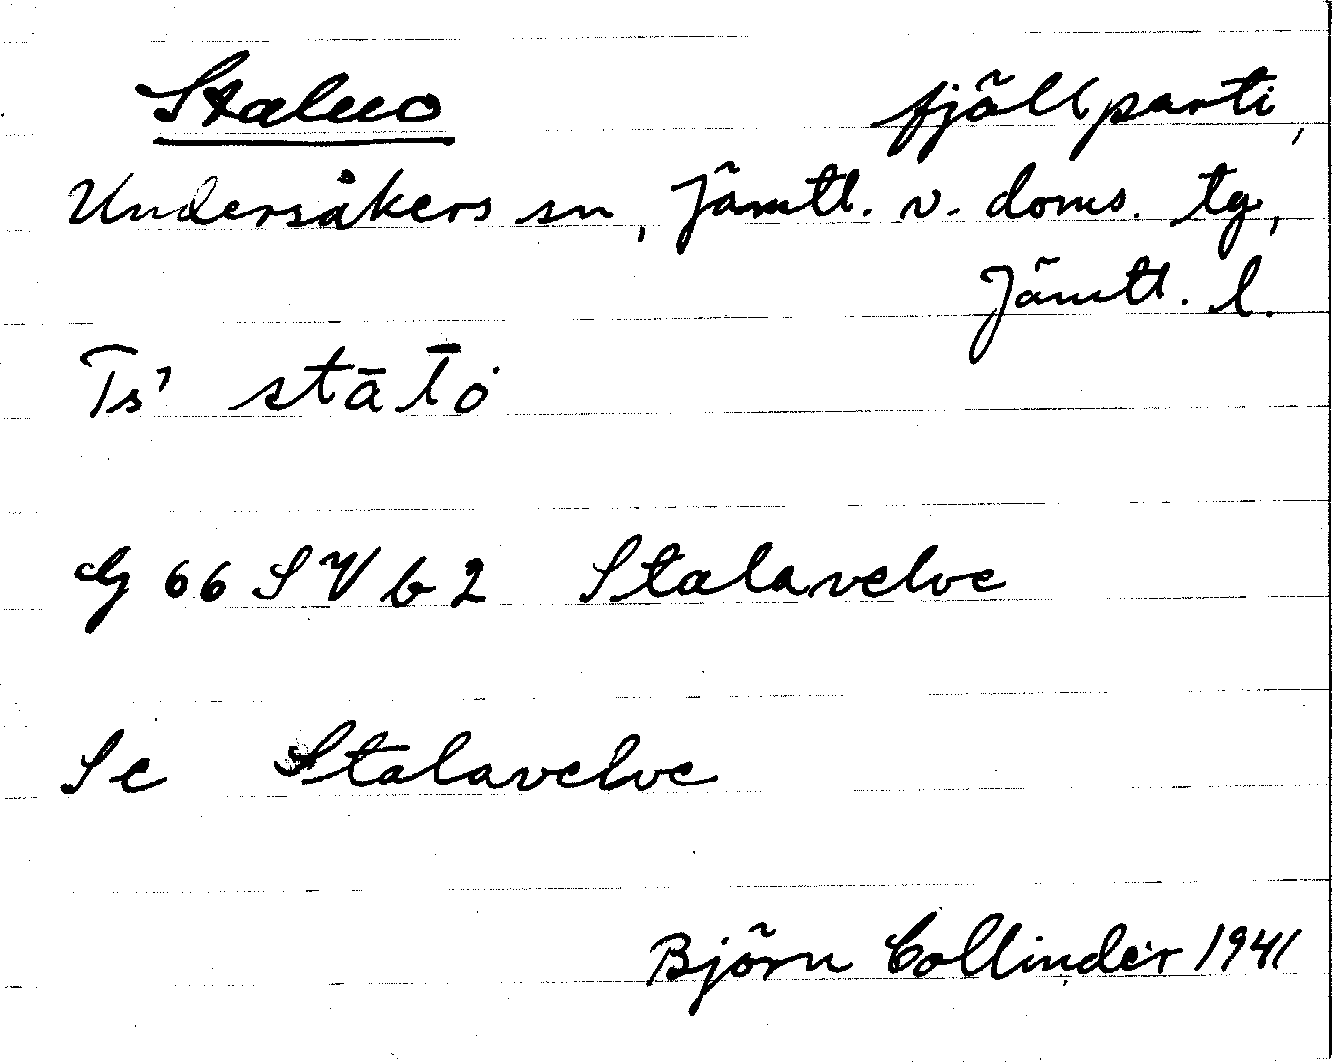 Staluo fjällparti,
Undersåkers sn, Jämtl. v. doms. tg,
Jämtl. l.
Ts' stāl̄ȯ
G 66 SV b 2 Stalavelve
Se Stalavelve
Björn Collinder 1941